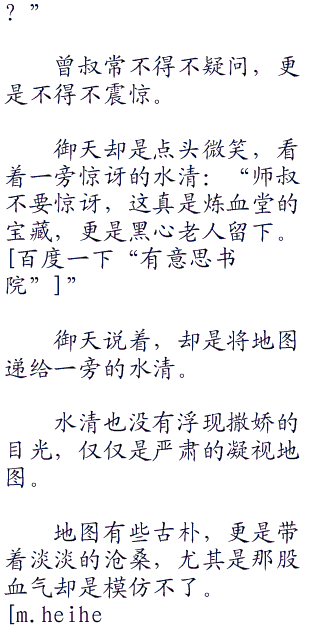 ？”
曾叔常不得不疑问，更
是不得不震惊。
御天却是点头微笑，看
着一旁惊讶的水清：“师叔
不要惊讶，这真是炼血堂的
宝藏，更是黑心老人留下。
[百度一下“有意思书
院”]”
御天说着，却是将地图
递给一旁的水清。
水清也没有浮现撒娇的
目光，仅仅是严肃的凝视地
图。
地图有些古朴，更是带
着淡淡的沧桑，尤其是那股
血气却是模仿不了。
[m.heihe